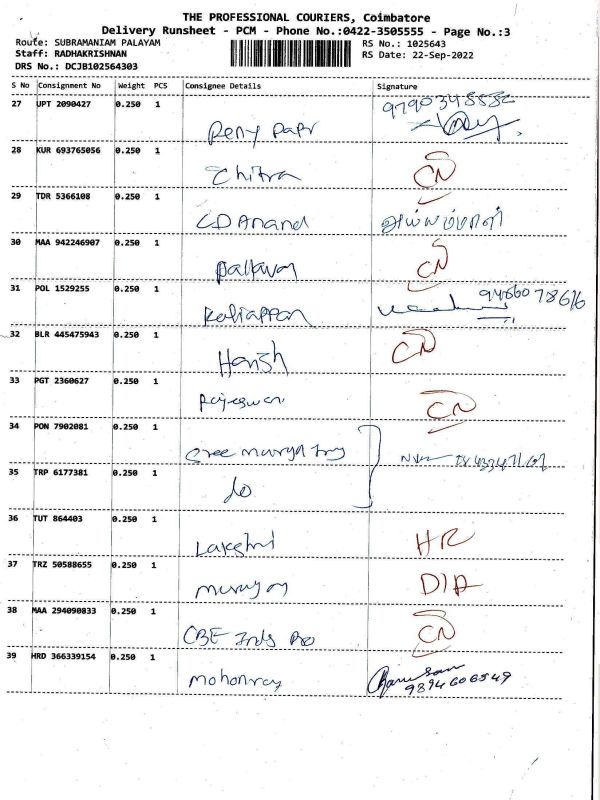 THE PROFESSIONAL COURIERS, Coimbatore
Delivery Runsheet - PCM - Phone No.:0422-3505555 - Page No.:3
Route: SUBRAMANIAM PALAYAM RS No.: 1025643
Staff: RADHAKRISHNAN RS Date: 22-Sep-2022
DRS No.: DCJB102564303
S No Consignment No Weight PCS Consignee Details Signature
27 UPT 2090427 0.250 1
9790348552
28 KUR 693765056 0.250 1
Chitra CN
29 TDR 5366108 0.250 1
CD Anand
30 MAA 942246907 0.250 1
CN
31 POL 1529255 0.250 1
Kaliappan
32 BLR 445475943 0.250 1
Harish CN
33 PGT 2360627 0.250 1
Rajeswari CN
34 PON 7902081 0.250 1
Sree Murugan
35 TRP 6177381 0.250 1
do
36 TUT 864403 0.250 1
Lakshmi HR
37 TRZ 50588655 0.250 1
Murugan D/A
38 MAA 294090833 0.250 1
CBE Inds CN
39 HRD 366339154 0.250 1
Mohanraj
9894606549